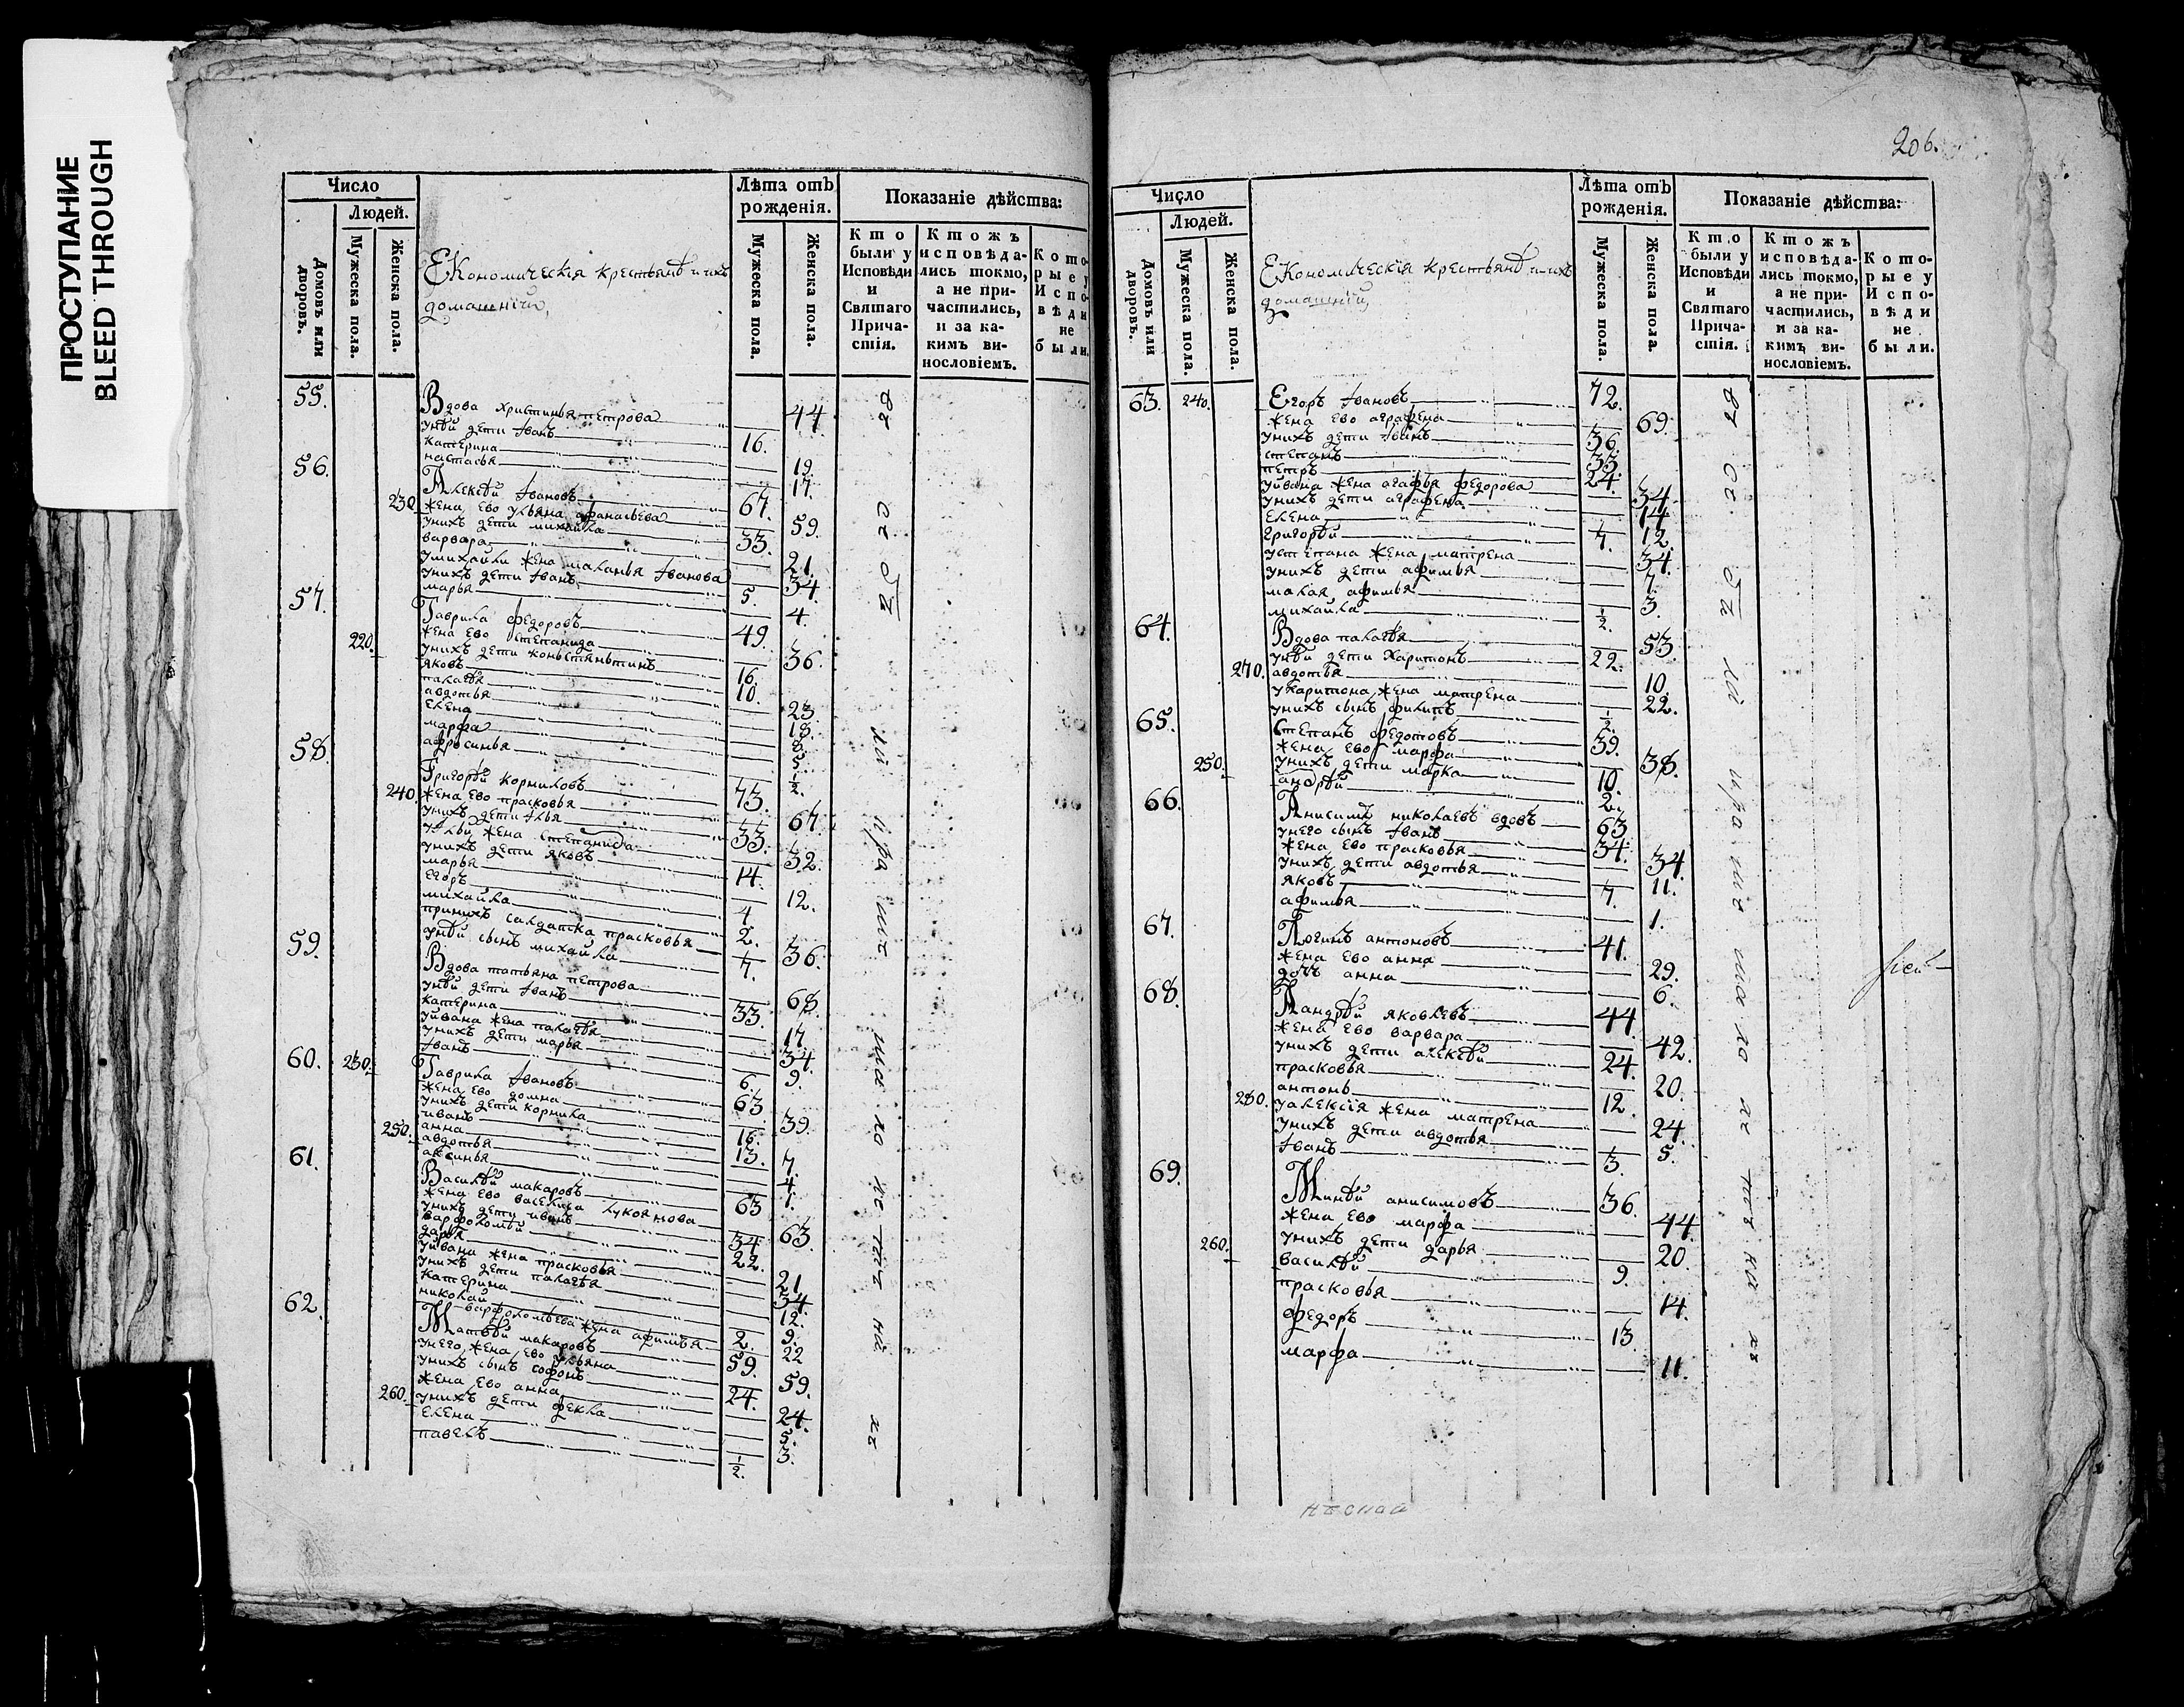 ПРОСТУПАНИЕ
BLEED THROUGH
Число
Людей.
Домовъ или дворовъ.
Мужеска пола.
Женска пола.
Економическія крестьянѣ и ихъ
домашнііи
Лѣта отъ рожденія.
Мужеска пола.
Женска пола.
Показаніе дѣйства:
Кто были у Исповѣди и Святаго Причастія.
Ктожъ исповѣдались токмо, а не причастились, и за какимъ винословіемъ.
Которые у Исповѣди не были.
55. Вдова христинья петрова 44
унѣи дети Iванъ 16.
катерина 19.
настасья 17.
56. Алексѣй Iвановъ 67.
230. жена ево ульяна афанасьева 59.
унихъ дети михайла 33.
варвара 21.
умихайлы жена маланья Iванова 34.
унихъ дети Iванъ 5.
марья 4.
57. Гаврила федоровъ 49.
жена ево степанида 36.
220. унихъ дети констянтинъ 16.
яковъ 10.
палагѣя 23.
авдотья 18.
елена 8.
марфа 5.
афросинья 1/2.
58. Григорѣй корниловъ 73.
240. жена ево прасковья 67
унихъ дети Iлья 33.
уIльи жена степанида 32.
унихъ дети яковъ 14.
марья 12.
егоръ 4.
михайла 2.
принихъ салдатка прасковья 36.
унѣи сынъ михайла 7.
59. Вдова татьяна петрова 68.
унѣи дети Iванъ 33.
катерина 17
уйвана жена палагѣя 34.
унихъ дети марья 9.
Iванъ 6.
60. 230. Гаврила Iвановъ 63
жена ево домна 39.
унихъ дети корнила 16.
иванъ 13.
250. анна 7.
авдотья 4.
аксинья 1.
61. Василѣй макаровъ 63
жена ево василиса лукоянова 63.
унихъ дети иванъ 34
варфоломѣй 22.
дарья 21
уйвана жена прасковья 34
унихъ дети палагѣя 12.
катерина 9.
николай 2.
варфоломѣева жена афимья 22
62. Матвѣй макаровъ 59.
унего жена ево ульяна 59.
унихъ сынъ софонъ 24.
жена ево анна 24
260. унихъ дети фекла 5.
елена 3.
павелъ 1/2.
206.
Число
Людей.
Домовъ или дворовъ.
Мужеска пола.
Женска пола.
Економическія крестьянѣ и ихъ
домашнііи
Лѣта отъ рожденія.
Мужеска пола.
Женска пола.
Показаніе дѣйства:
Кто были у Исповѣди и Святаго Причастія.
Ктожъ исповѣдались токмо, а не причастились, и за какимъ винословіемъ.
Которые у Исповѣди не были.
63. 240. Егоръ Iвановъ 72.
жена ево аграфена 69.
унихъ дети Iванъ 36.
степанъ 33.
петръ 24.
уйвана жена агафья федорова 34.
унихъ дети аграфена 14.
елена 12.
григорѣй 7.
устепана жена матрена 34.
унихъ дети афимья 7.
малая афимья 3.
михайла 1/2.
64. Вдова палагѣя 53
унѣи дети Харитонъ 22.
270. авдотья 10.
ухаритона жена матрена 22.
унихъ сынъ филипъ 1/2.
65. Степанъ федотовъ 39.
жена ево марфа 38.
250. унихъ дети марка 10.
андрѣй 2.
66. Анисимъ николаевъ вдовъ 63
унего сынъ Iванъ 34.
жена ево прасковья 34.
унихъ дети авдотья 11.
яковъ 7.
афимья 1.
67. Логинъ антоновъ 41.
жена ево анна 29.
дочь анна 6.
68. Андрѣй яковлевъ 44
жена ево варвара 42.
унихъ дети алексѣй 24.
прасковья 20.
антонъ 12.
280. уалексія жена матрена 24.
унихъ дети авдотья 5.
Iванъ 3.
69. Минѣй анисимовъ 36.
жена ево марфа 44.
унихъ дети дарья 20.
260. василѣй 9.
прасковья 14.
федоръ 13
марфа 11.